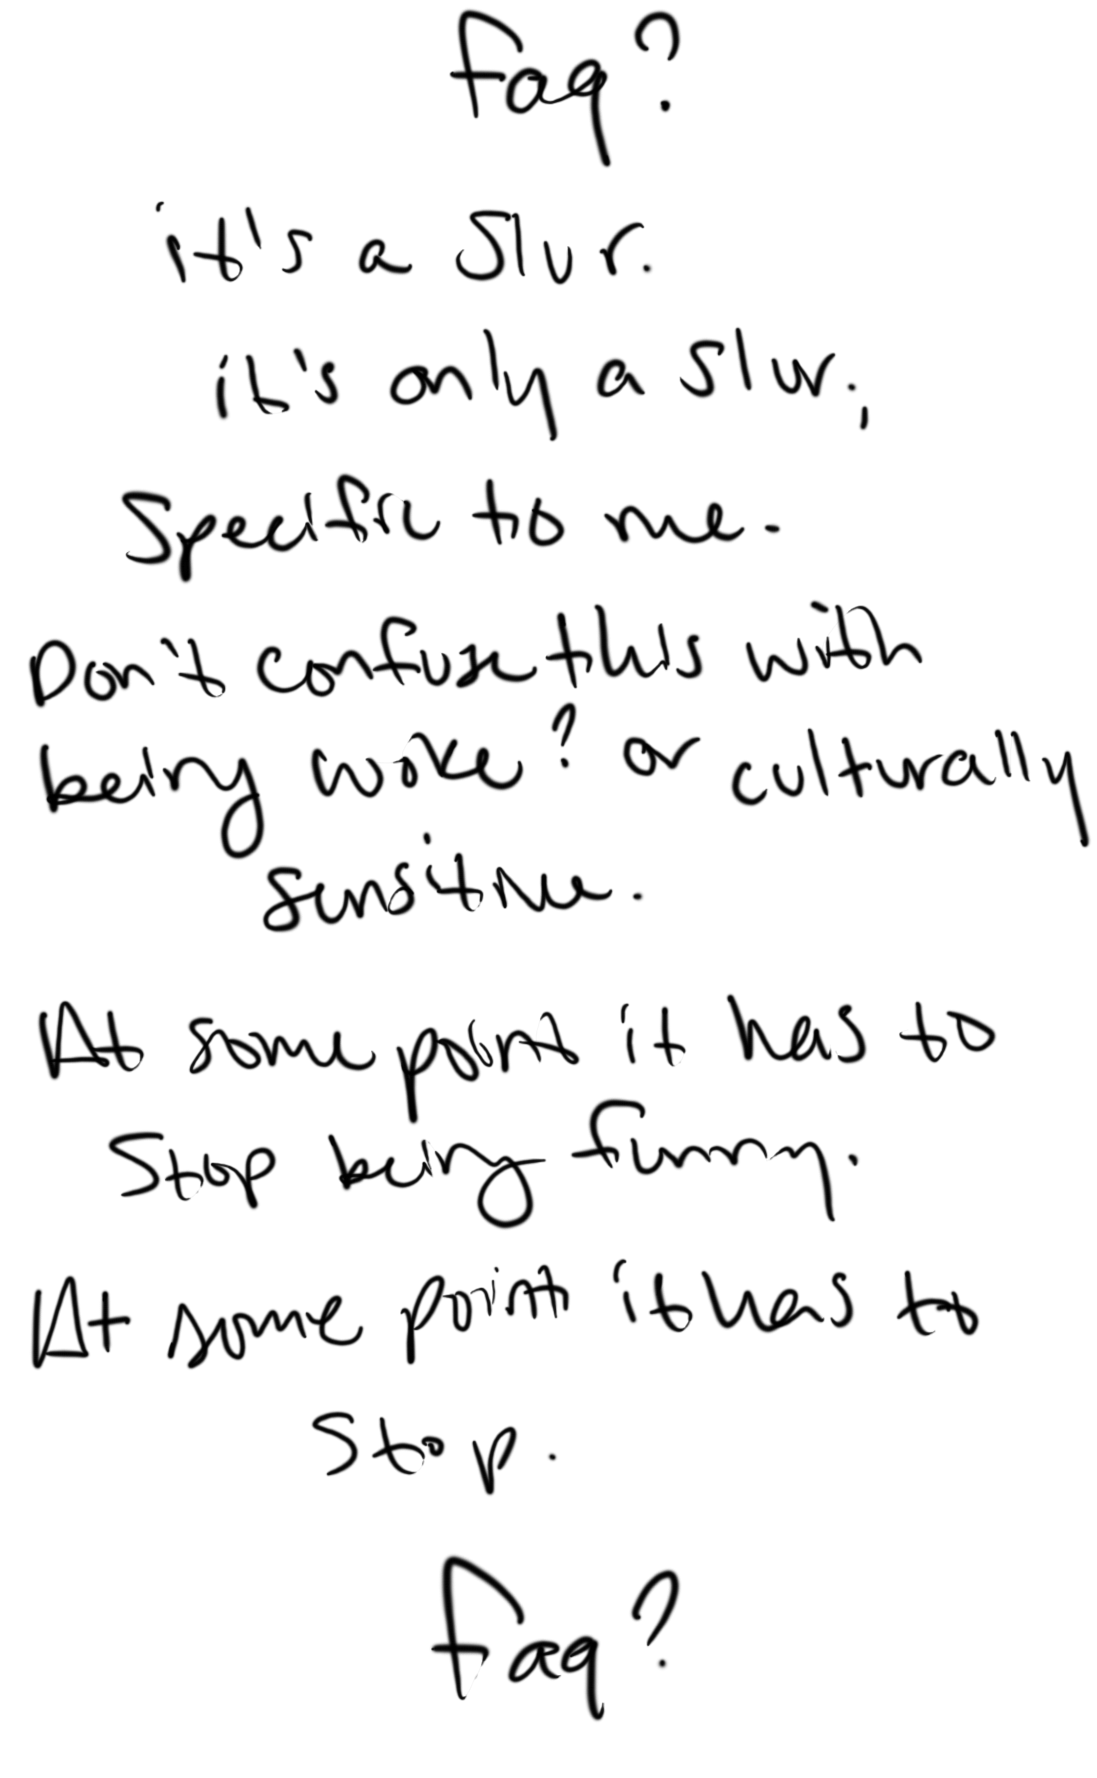 faq?
it's a slur.
it's only a slur.,
Specific to me.
Don't confuse this with
being woke? or culturally
sensitive.
At some point it has to
Stop being funny.
At some point it has to
Stop.
faq?